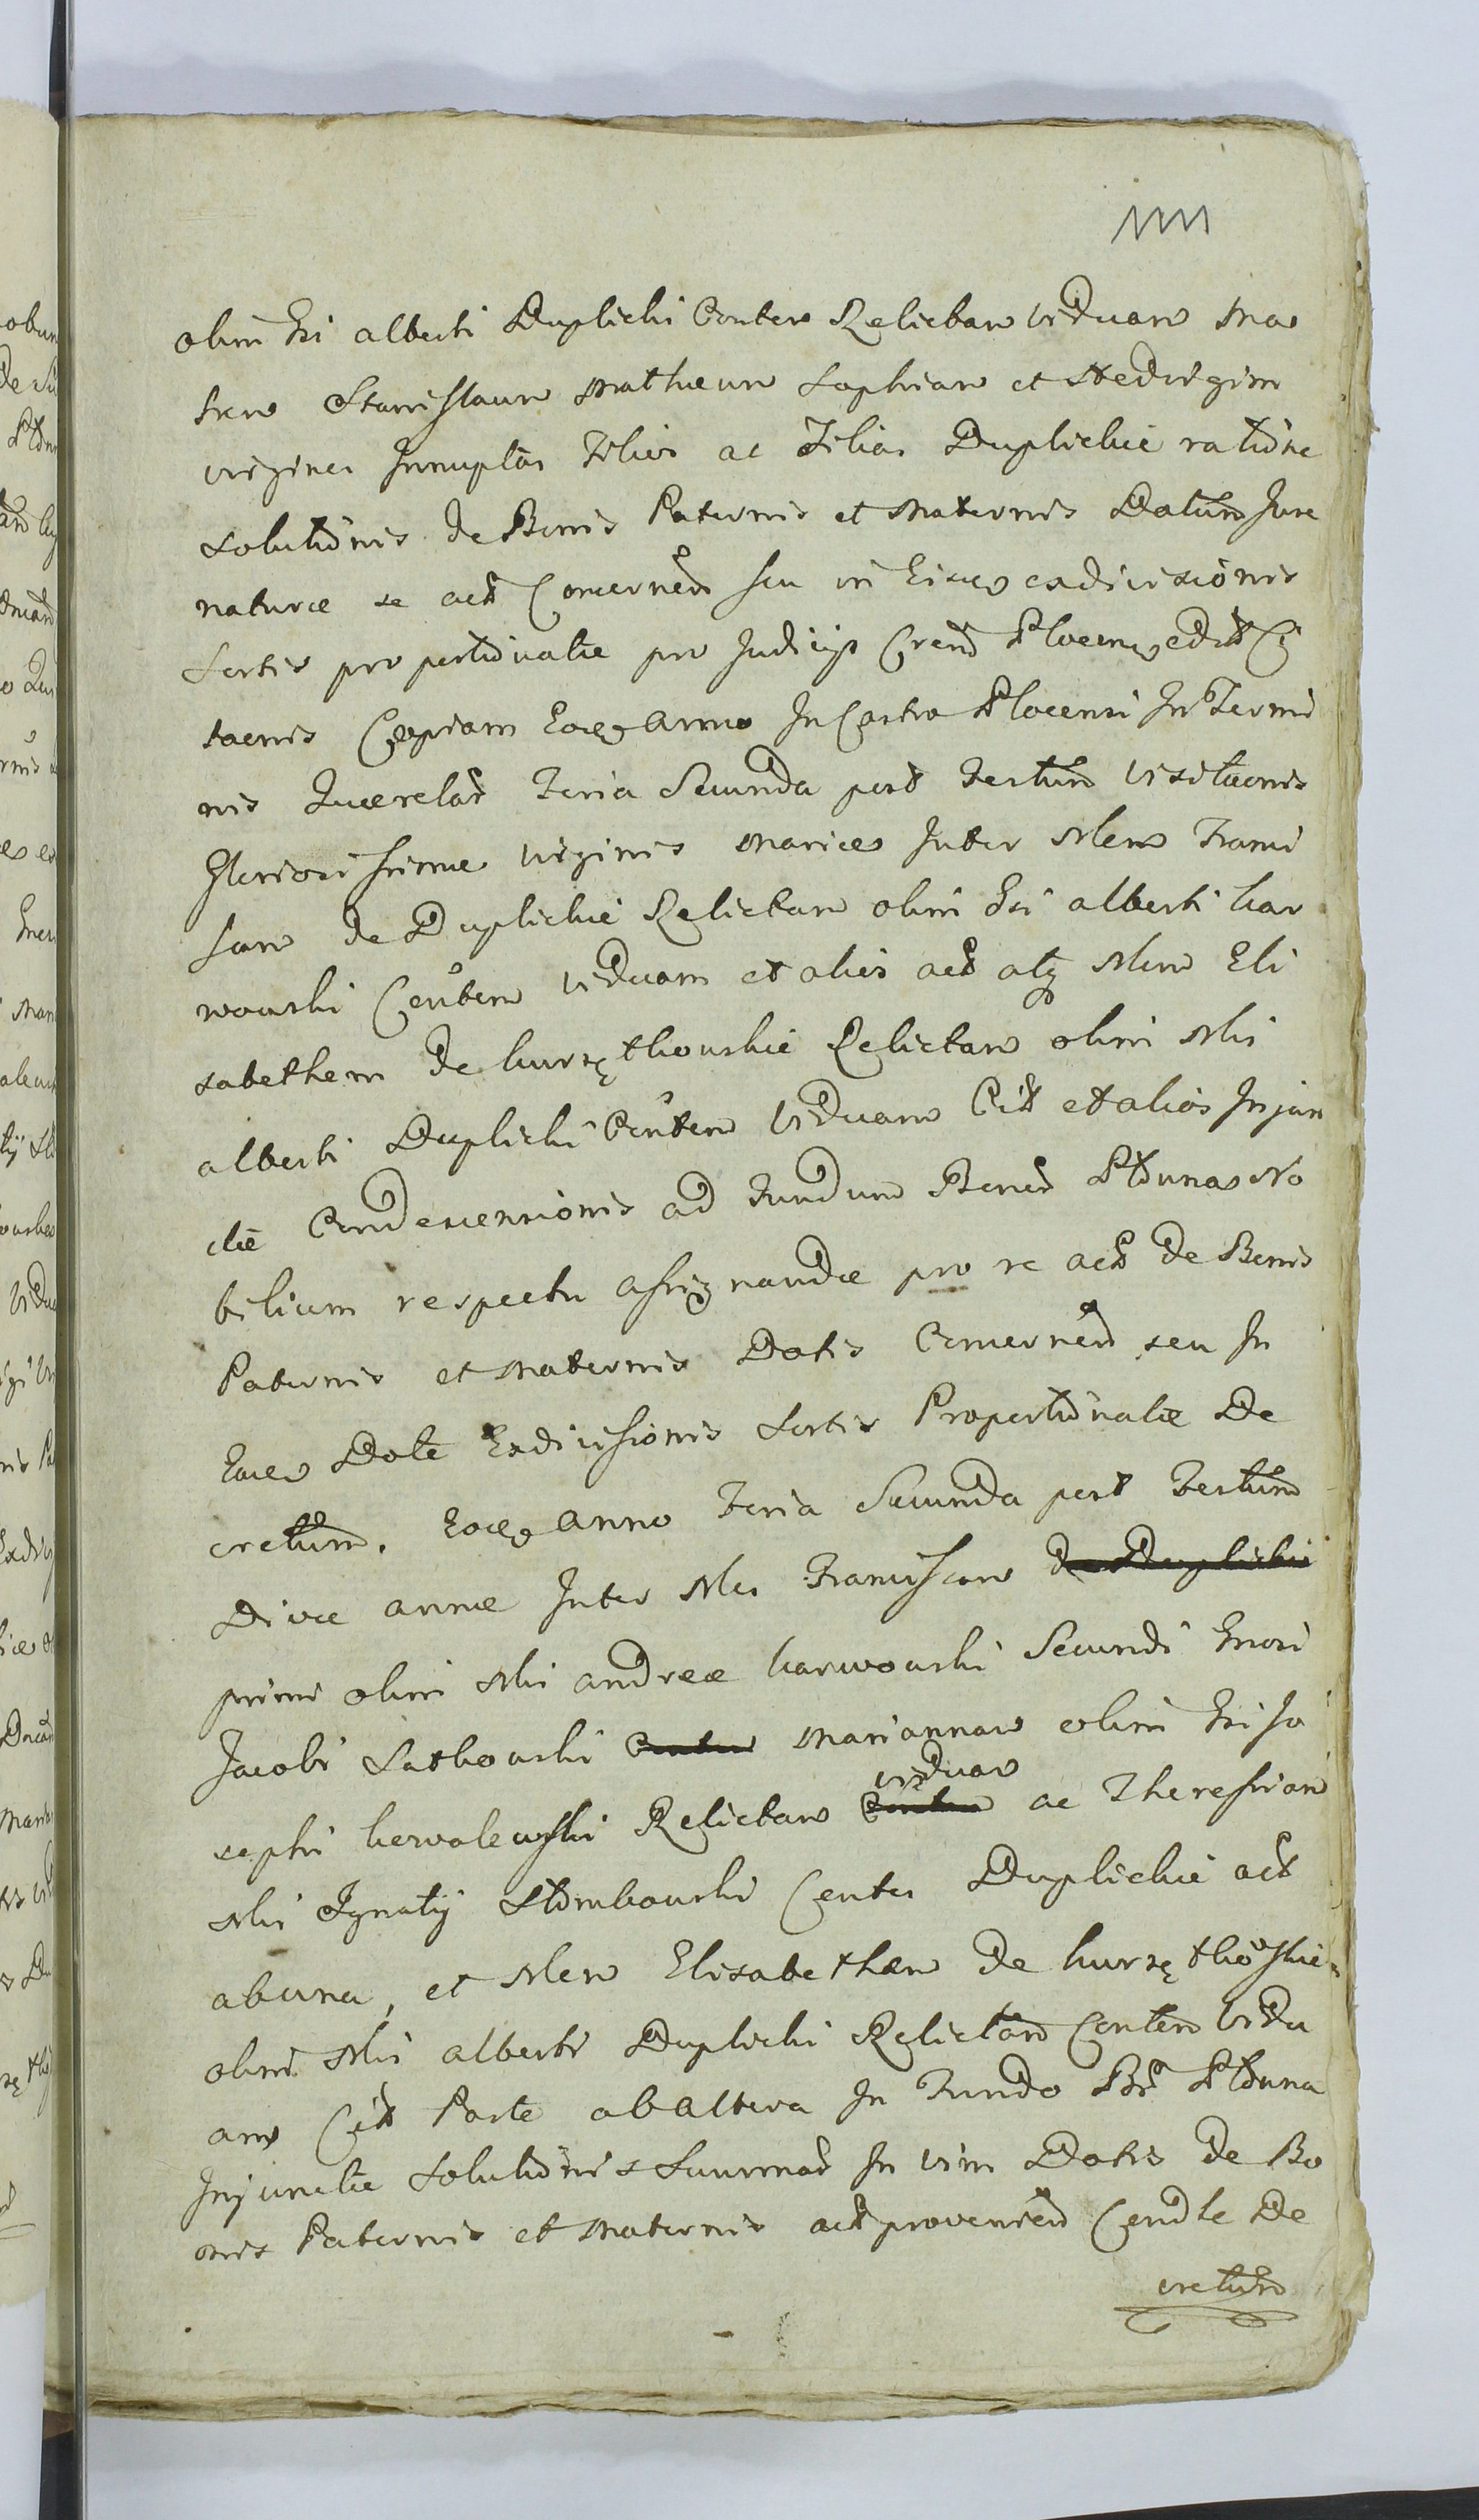 olim Gsi alberti Duplicki Contem Relictam viduam Ma
trem Stanislaum Mathaeum Sophiam et Hedvigim
virgines Innuptas Filios ac Filias Duplickie ratione
Solutionis de Bonis Paternis et Maternis Dotum Jure
naturae se act Concernen seu in Eisve exdivisionis
Sortis proportionatae pro Judicijs Plocen edit Ci
taonis Copiam Eoq Anno In Castro Plocensi In Termi
nis Querelar Feria Secunda post Festum Visitaonis
Gloriosissimae virginis Mariae Inter Nlem Franci
scam de Duplickie Relictam olim Gsi alberti kar
wowski Contem viduam et alios act atq Nlem Eli
sabetham de kurzęthowskie Relictam olim Nlis
alberti Duplicki Contem viduam Cit et alios Injun
ctae Condescensionis ad Fundum Bonor Płonna No
bilium respectu assignandae pro re act de Bonis
Paternis et Maternis Dotis Concernen seu In
Eave Dote Exdivisionis Sortis Proportionatae De
cretum. Eoq Anno Feria Secunda post Festum
Divae annae Inter Nles Franciscam de Duplickie
primi olim Nlis andreae karwowski Secundi Gnosi
Jacobi Sutkowski Contem Mariannam olim Gsi Jo
viduam
sephi kowalewski Relictam Contem ac Theressiam
Nlis Ignatij Słombowski Contes Duplickie act
ab una, et Nlem Elisabetham de kurzęthowskie
olim Nlis alberti Duplicki Relictam Contem vidu
am Cit Parte ab altera In Fundo Bor Płonna
Injunctae Solutionis Summar In vim Dotis de Bo
nis Paternis et Maternis act provenien Condle De
cretum